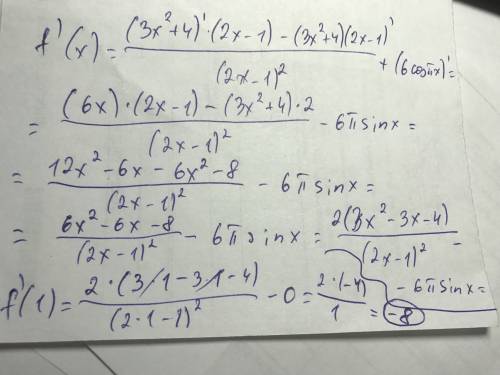 f'(x) = ((3x²+4)'·(2x-1) - (3x²+4)(2x-1)')/(2x-1)² + (6cosπx)' =
= ((6x)·(2x-1) - (3x²+4)·2)/(2x-1)² - 6πsinx =
= (12x² - 6x - 6x² - 8)/(2x-1)² - 6πsinx =
= (6x² - 6x - 8)/(2x-1)² - 6πsinx = 2(3x² - 3x - 4)/(2x-1)² -
- 6πsinx =
f'(1) = 2·(3·1 - 3·1 - 4)/(2·1-1)² - 0 = 2·(-4)/1 = -8